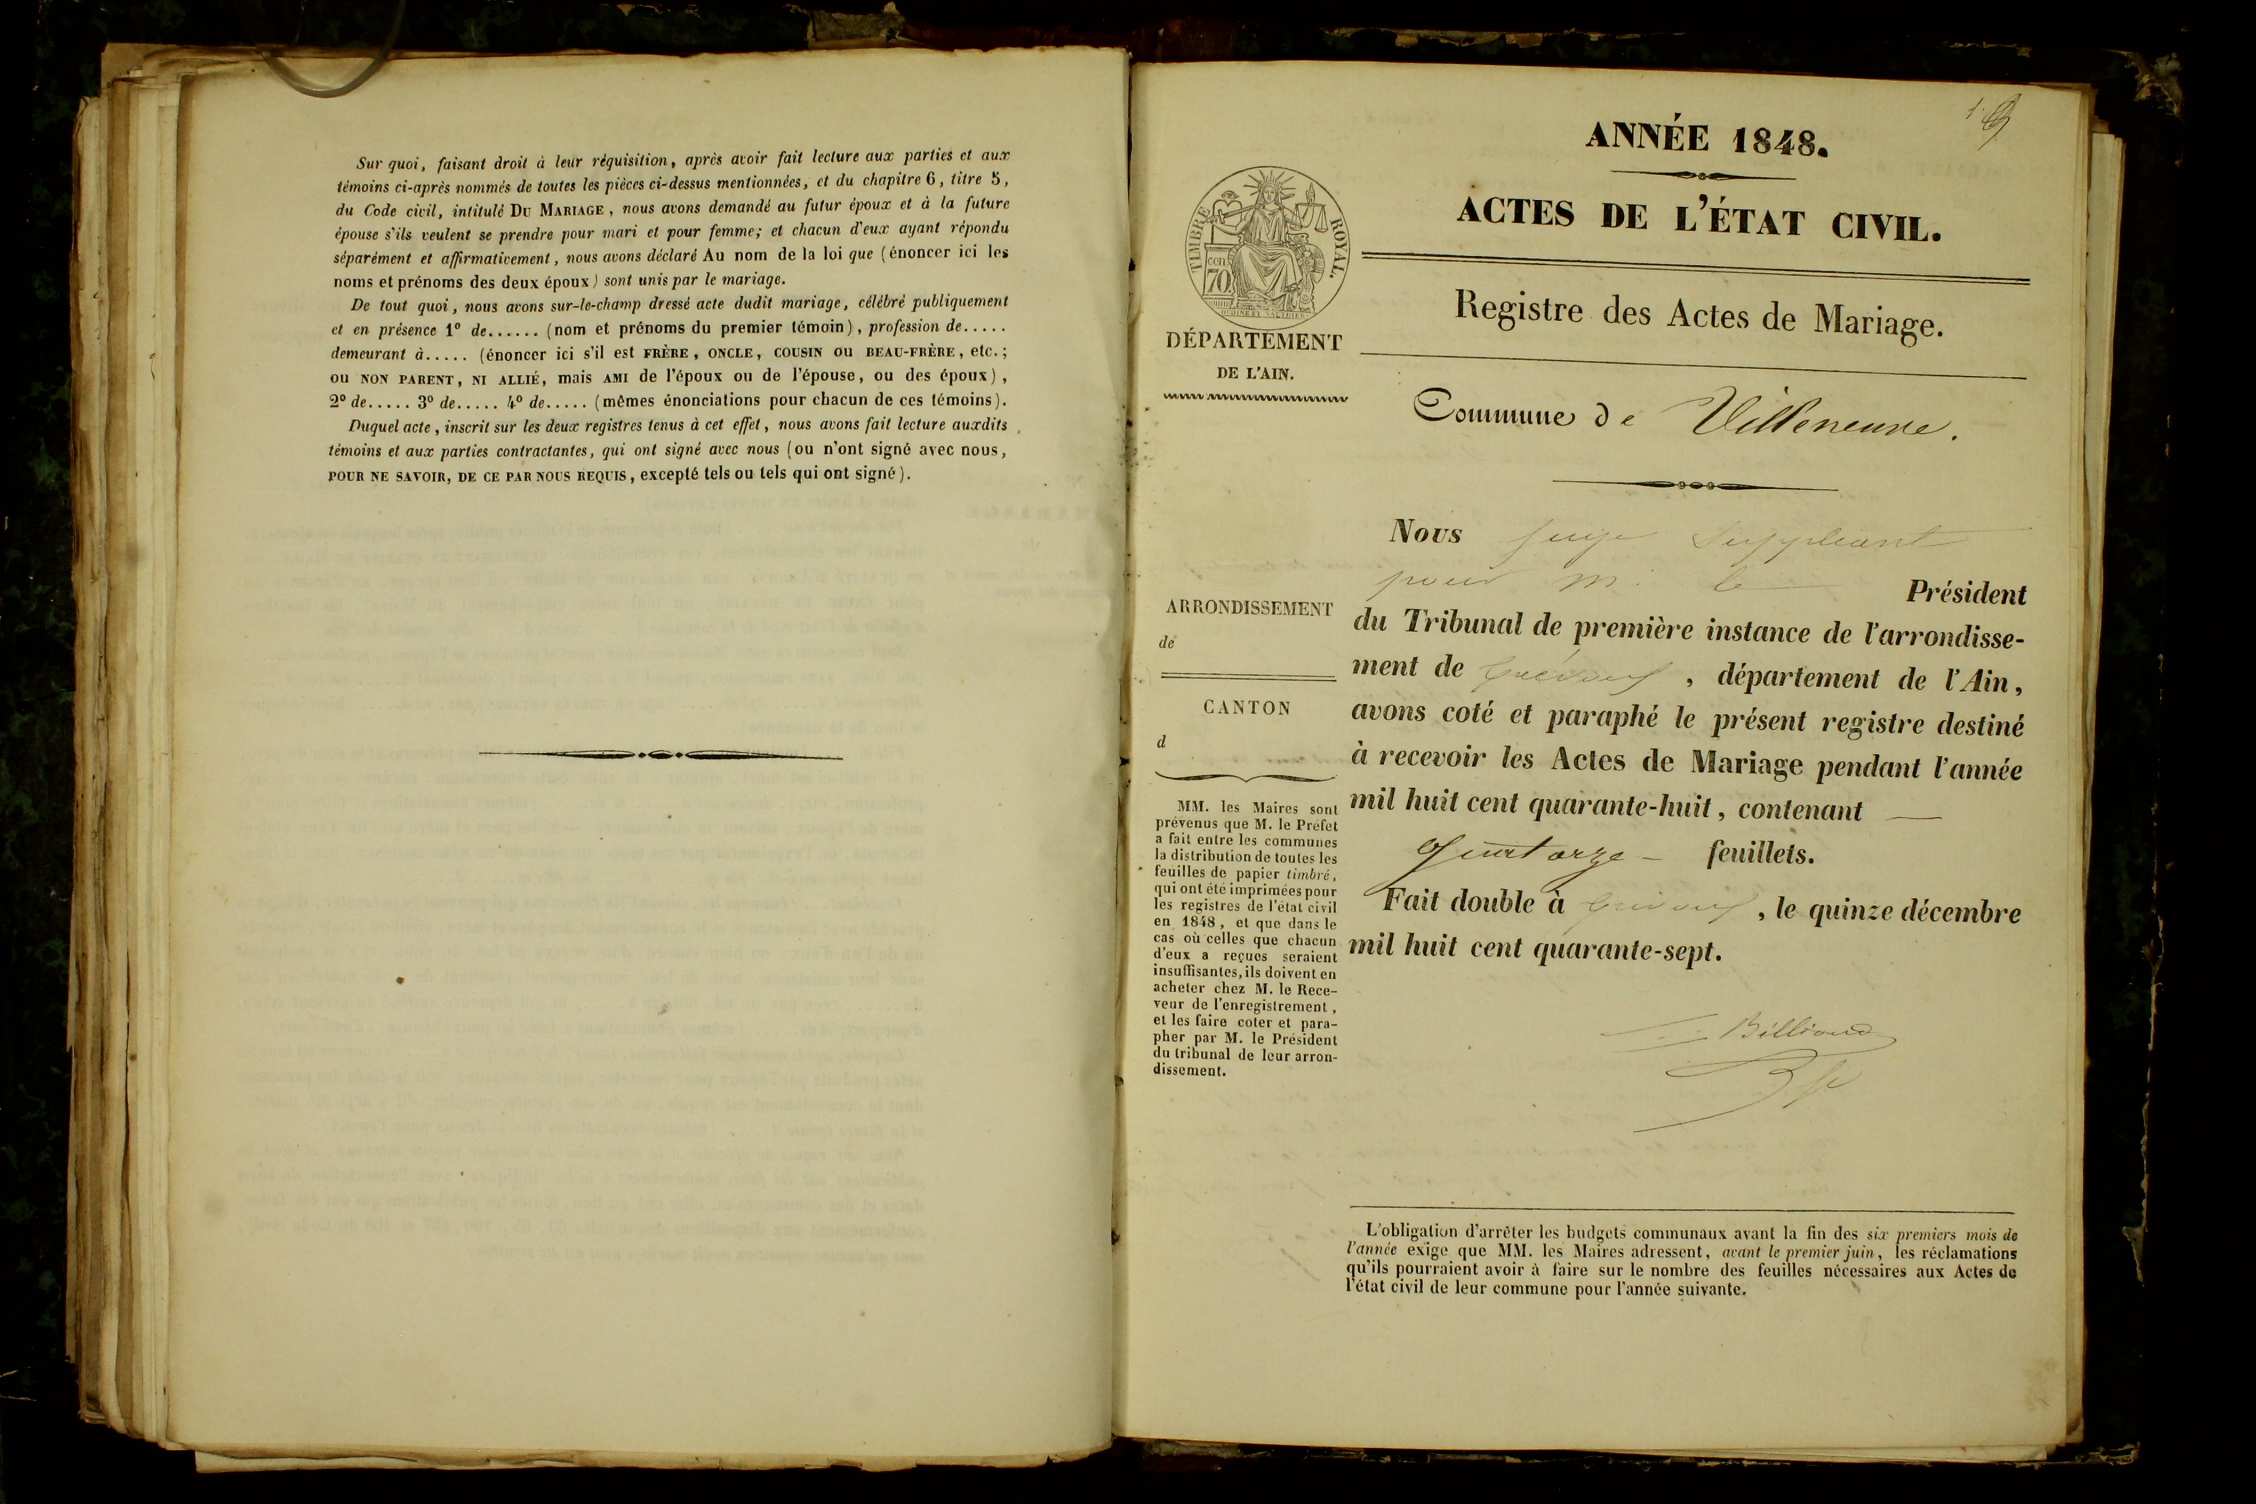 Sur quoi, faisant droit à leur réquisition, après avoir fait lecture aux parties et aux
témoins ci-après nommés de toutes les pièces ci-dessus mentionnées, et du chapitre 6, titre 5,
du Code civil, intitulé DU MARIAGE, nous avons demandé au futur époux et à la future
épouse s'ils veulent se prendre pour mari et pour femme; et chacun d'eux ayant répondu
séparément et affirmativement, nous avons déclaré Au nom de la loi que (énoncer ici les
noms et prénoms des deux époux) sont unis par le mariage.
De tout quoi, nous avons sur-le-champ dressé acte dudit mariage, célébré publiquement
et en présence 1º de...... (nom et prénoms du premier témoin), profession de.....
demeurant à..... (énoncer ici s'il est FRÈRE, ONCLE, COUSIN OU BEAU-FRÈRE, etc.;
ou NON PARENT, NI ALLIÉ, mais AMI de l'époux ou de l'épouse, ou des époux),
2º de..... 3º de..... 4º de..... (mêmes énonciations pour chacun de ces témoins).
Duquel acte, inscrit sur les deux registres tenus à cet effet, nous avons fait lecture auxdits
témoins et aux parties contractantes, qui ont signé avec nous (ou n'ont signé avec nous,
POUR NE SAVOIR, DE CE PAR NOUS REQUIS, excepté tels ou tels qui ont signé).
ANNÉE 1848.
ACTES DE L'ÉTAT CIVIL.
TIMBRE ROYAL.
cen 70
DÉPARTEMENT
DE L'AIN.
Registre des Actes de Mariage.
Commune de Villeneuve.
Nous juge suppléant
pour m. le Président
du Tribunal de première instance de l'arrondisse-
ment de Trévoux, département de l'Ain,
avons coté et paraphé le présent registre destiné
à recevoir les Actes de Mariage pendant l'année
mil huit cent quarante-huit, contenant —
quatorze — feuillets.
Fait double à Trévoux, le quinze décembre
mil huit cent quarante-sept.
Billioud
ARRONDISSEMENT
de
CANTON
d
MM. les Maires sont
prévenus que M. le Préfet
a fait entre les communes
la distribution de toutes les
feuilles de papier timbré,
qui ont été imprimées pour
les registres de l'état civil
en 1848, et que dans le
cas où celles que chacun
d'eux a reçues seraient
insuffisantes, ils doivent en
acheter chez M. le Rece-
veur de l'enregistrement,
et les faire coter et para-
pher par M. le Président
du tribunal de leur arron-
dissement.
L'obligation d'arrêter les budgets communaux avant la fin des six premiers mois de
l'année exige que MM. les Maires adressent, avant le premier juin, les réclamations
qu'ils pourraient avoir à faire sur le nombre des feuilles nécessaires aux Actes de
l'état civil de leur commune pour l'année suivante.